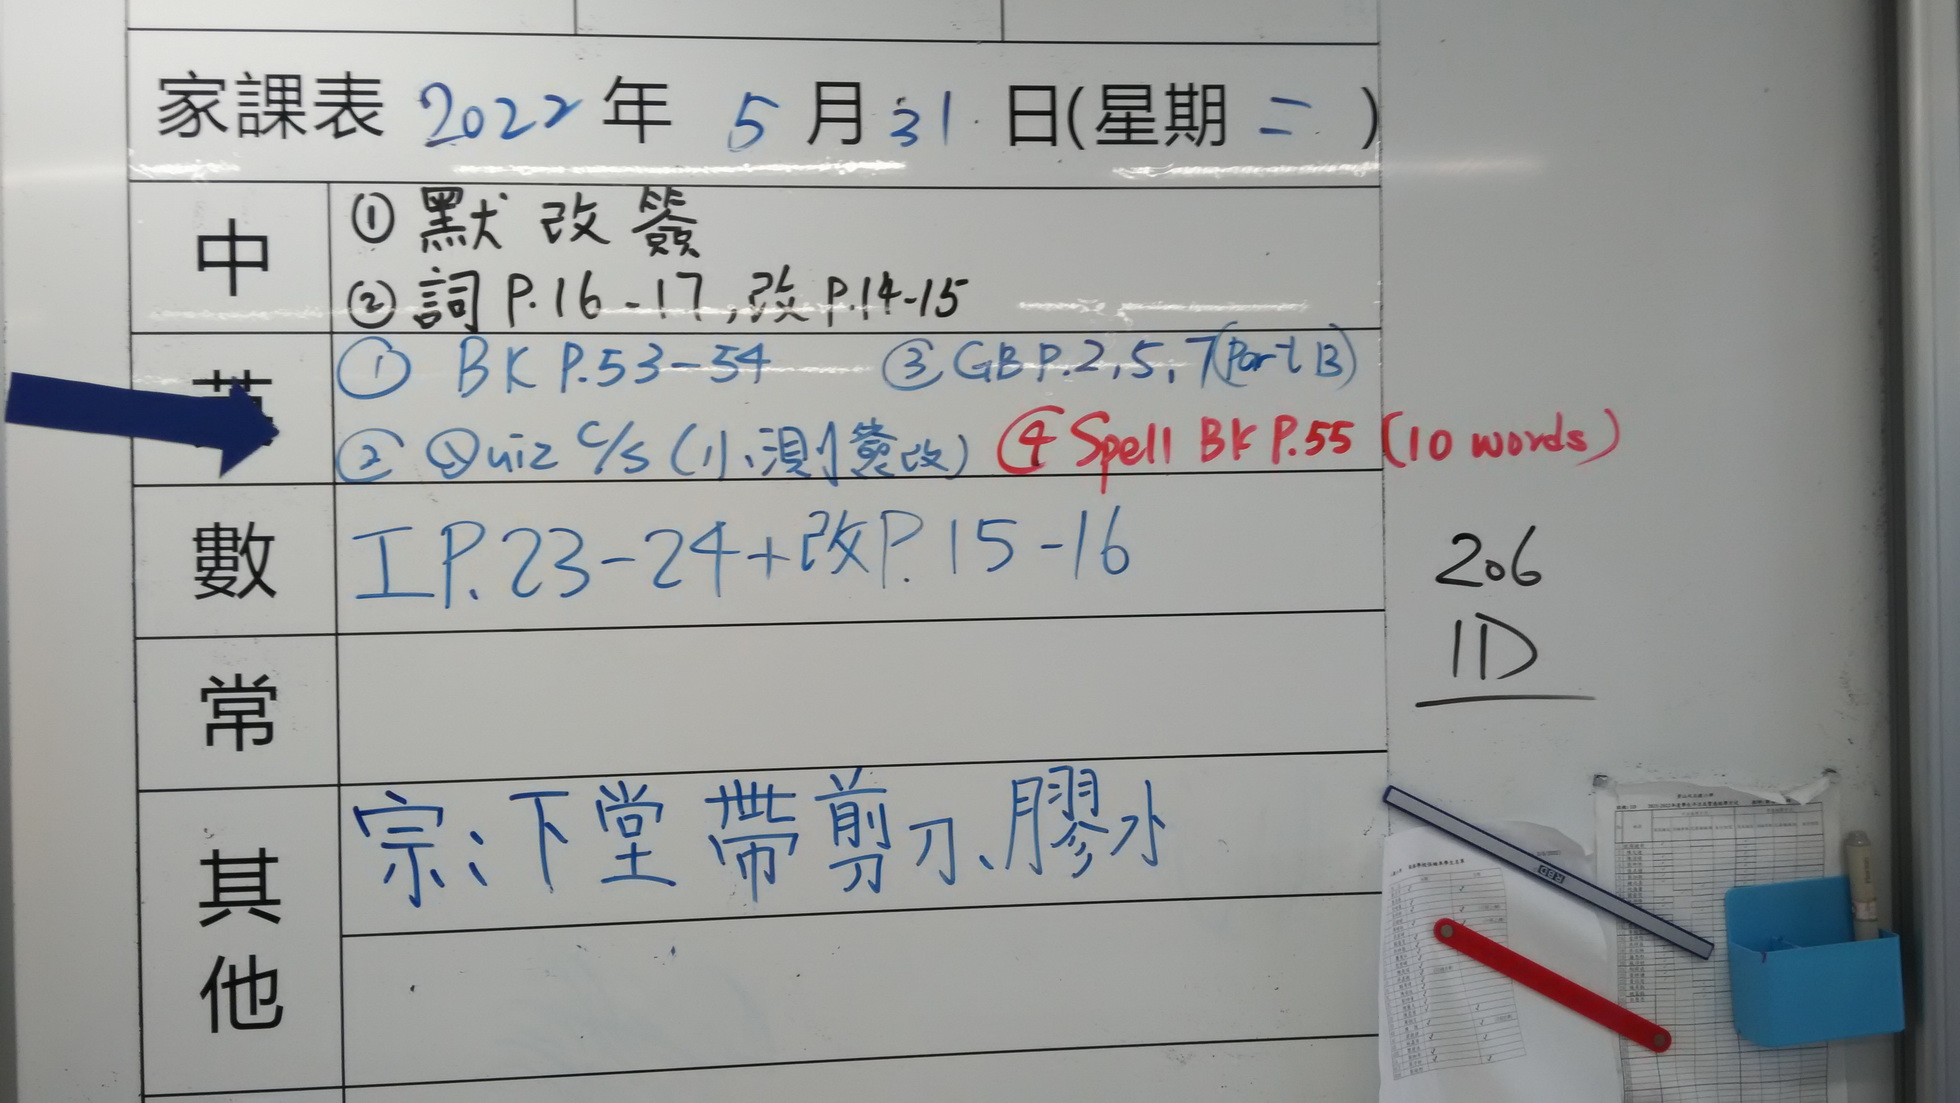 家課表 2022 年 5 月 31 日(星期 二 )
中
① 默 改 簽
② 詞 P.16-17,改 P.14-15
① BK P.53-54 ③ GB P.2,5,7(Part B)
② Quiz c/s (小測簽改) ④ Spell BK P.55 (10 words)
數
工 P.23-24+改P.15-16
206
1D
常
其他
宗:下堂帶剪刀、膠水